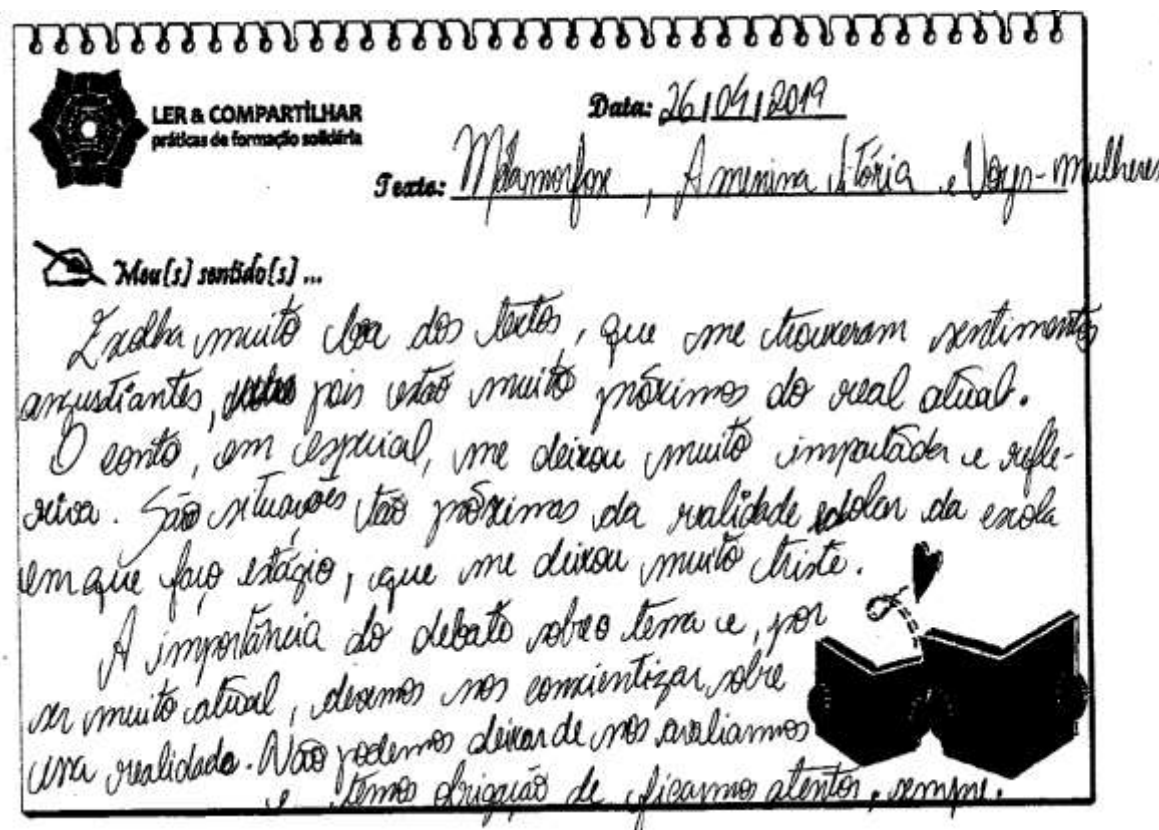 LER & COMPARTILHAR
práticas de formação solidária
Data: 26/04/2019
Texto: Metamorfose, A menina Vitória e Vozes-Mulheres
Meu(s) sentido(s) ...
Escolha muito boa dos textos, que me trouxeram sentimentos
angustiantes, pois estão muito próximos do real atual.
O conto, em especial, me deixou muito impactada e refle-
xiva. São situações tão próximas da realidade escolar da escola
em que faço estágio, que me deixou muito triste.
A importância do debate sobre o tema e, por
ser muito atual, devemos nos conscientizar sobre
essa realidade. Não podemos deixar de nos avaliarmos
e temos obrigação de ficarmos atentos, sempre.